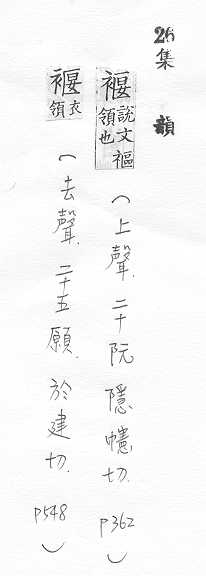 26 集韻
褗 說文褔領也 (上聲. 二十阮 隱幰切. P362)
褗 衣領 (去聲. 二十五願. 於建切. P548)